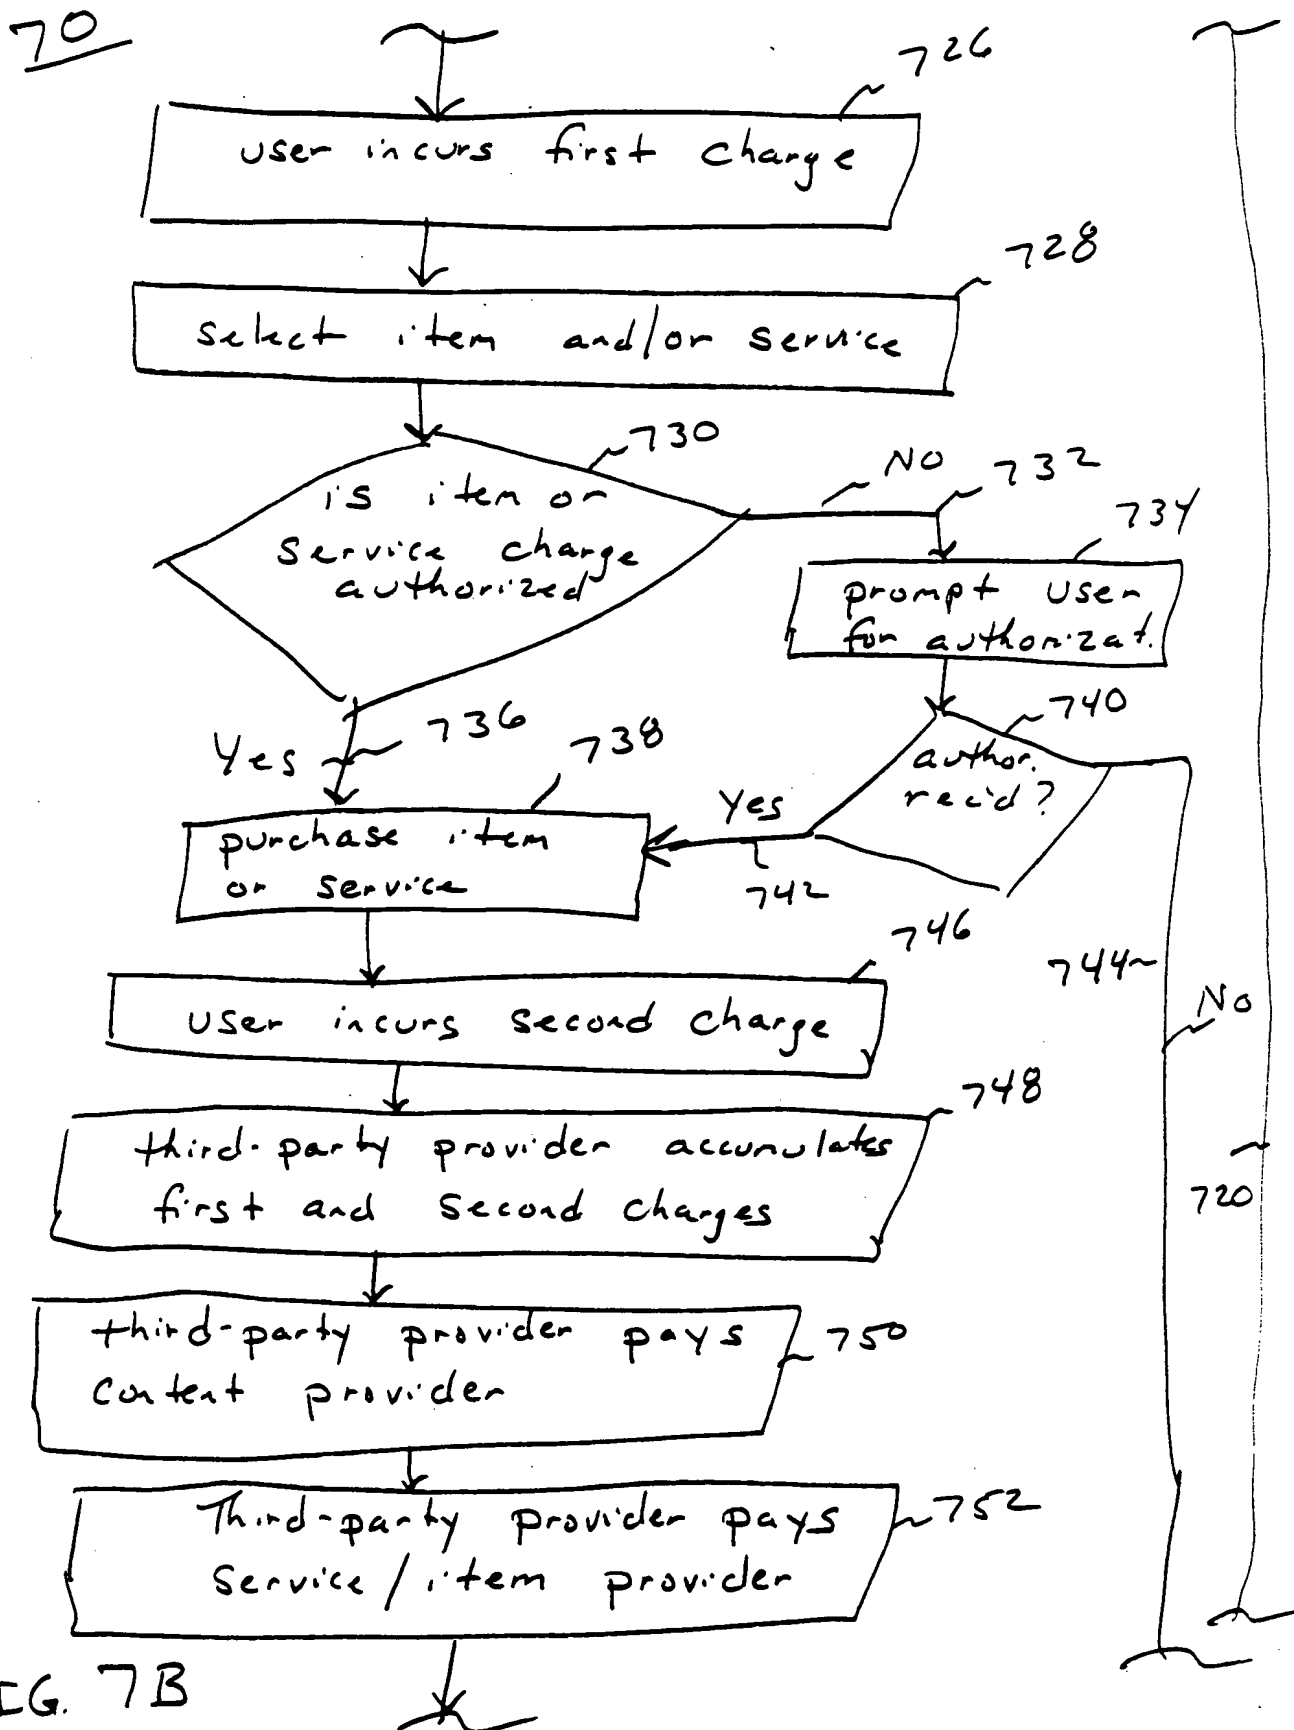 70
726
user incurs first charge
728
select item and/or service
730
is item or
service charge
authorized
NO
732
734
prompt user
for authorizat.
Yes
736
738
740
author.
rec'd?
Yes
742
purchase item
or service
746
744
No
user incurs second charge
748
third-party provider accumulates
first and second charges
720
third-party provider pays
content provider
750
Third-party provider pays
service/item provider
752
IG. 7B